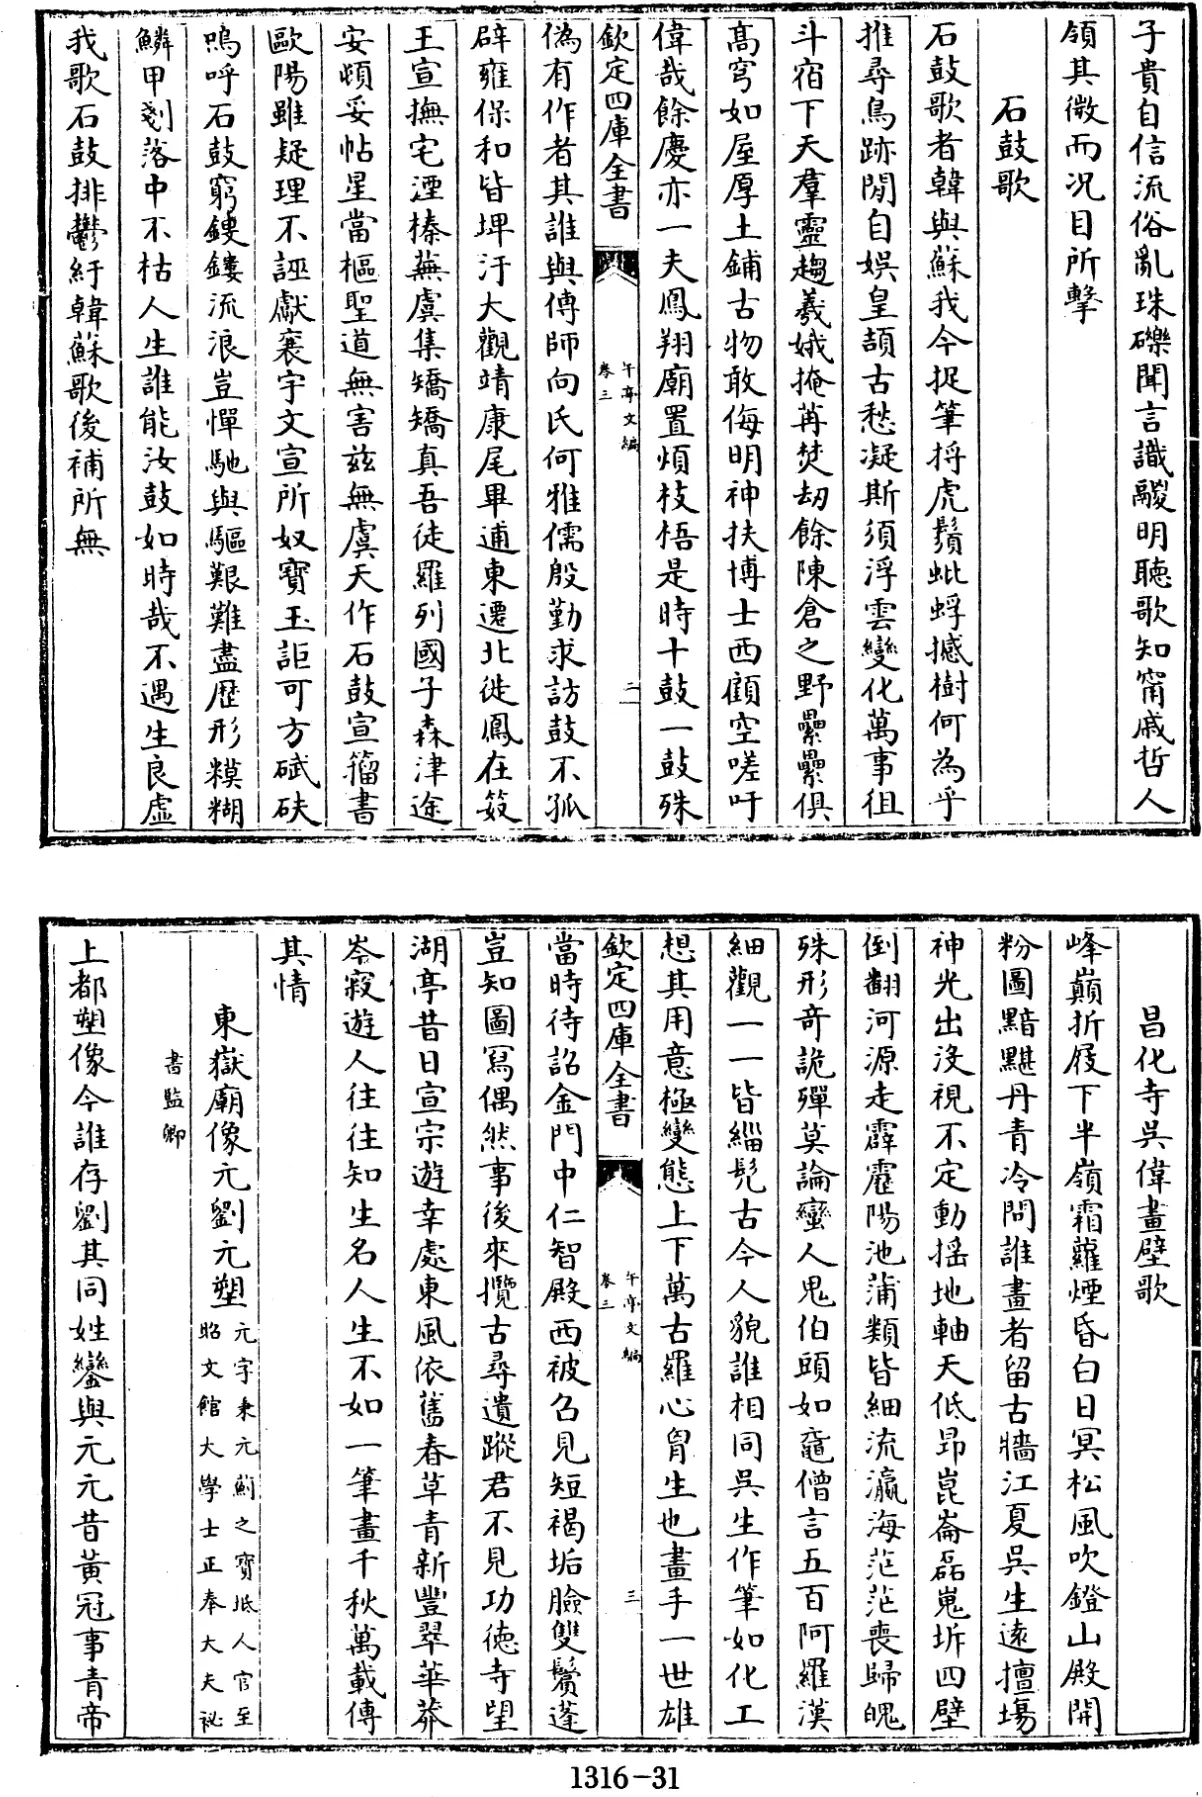 子貴自信流俗亂珠礫聞言識鬷明聽歌知甯戚哲人
領其微而況目所擊
石鼓歌
石鼓歌者韓與蘇我今捉筆捋虎鬚蚍蜉撼樹何為乎
推尋鳥跡閒自娛皇頡古愁凝斯須浮雲變化萬事徂
斗宿下天羣靈趨羲娥掩苒焚劫餘陳倉之野纍纍俱
高穹如屋厚土鋪古物敢侮明神扶博士西顧空嗟吁
偉哉餘慶亦一夫鳳翔廟置煩枝梧是時十鼓一鼓殊
欽定四庫全書
午亭文編
卷三
二
偽有作者其誰與傅師向氏何雅儒殷勤求訪鼓不孤
辟雍保和皆埤汙大觀靖康尾畢逋東遷北徙鳳在笯
王宣撫宅湮榛蕪虞集矯矯真吾徒羅列國子森津途
安頓妥帖星當樞聖道無害茲無虞天作石鼓宣籀書
歐陽雖疑理不誣獻襄宇文宣所奴寶玉詎可方碔砆
嗚呼石鼓窮鏤鏤流浪豈憚馳與驅艱難盡歷形糢糊
鱗甲剗落中不枯人生誰能汝鼓如時哉不遇生良虛
我歌石鼓排鬱紆韓蘇歌後補所無
昌化寺吳偉畫壁歌
峰巔折屐下半嶺霜蘿煙昏白日冥松風吹鐙山殿開
粉圖黯黮丹青冷問誰畫者留古牆江夏吳生遠擅場
神光出沒視不定動搖地軸天低昂崑崙磊嵬坼四壁
倒翻河源走霹靂陽池蒲類皆細流瀛海茫茫喪歸魄
殊形奇詭殫莫論蠻人鬼伯頭如黿僧言五百阿羅漢
細觀一一皆緇髡古今人貌誰相同吳生作筆如化工
想其用意極變態上下萬古羅心胷生也畫手一世雄
欽定四庫全書
午亭文編
卷三
三
當時待詔金門中仁智殿西被召見短褐垢臉雙鬢蓬
豈知圖寫偶然事後來攬古尋遺蹤君不見功德寺望
湖亭昔日宣宗遊幸處東風依舊春草青新豐翠華莽
岑寂遊人往往知生名人生不如一筆畫千秋萬載傳
其情
東嶽廟像元劉元塑元字秉元薊之寶坻人官至
昭文館大學士正奉大夫祕
書監卿
上都塑像今誰存劉其同姓鑾與元元昔黃冠事青帝
1316-31